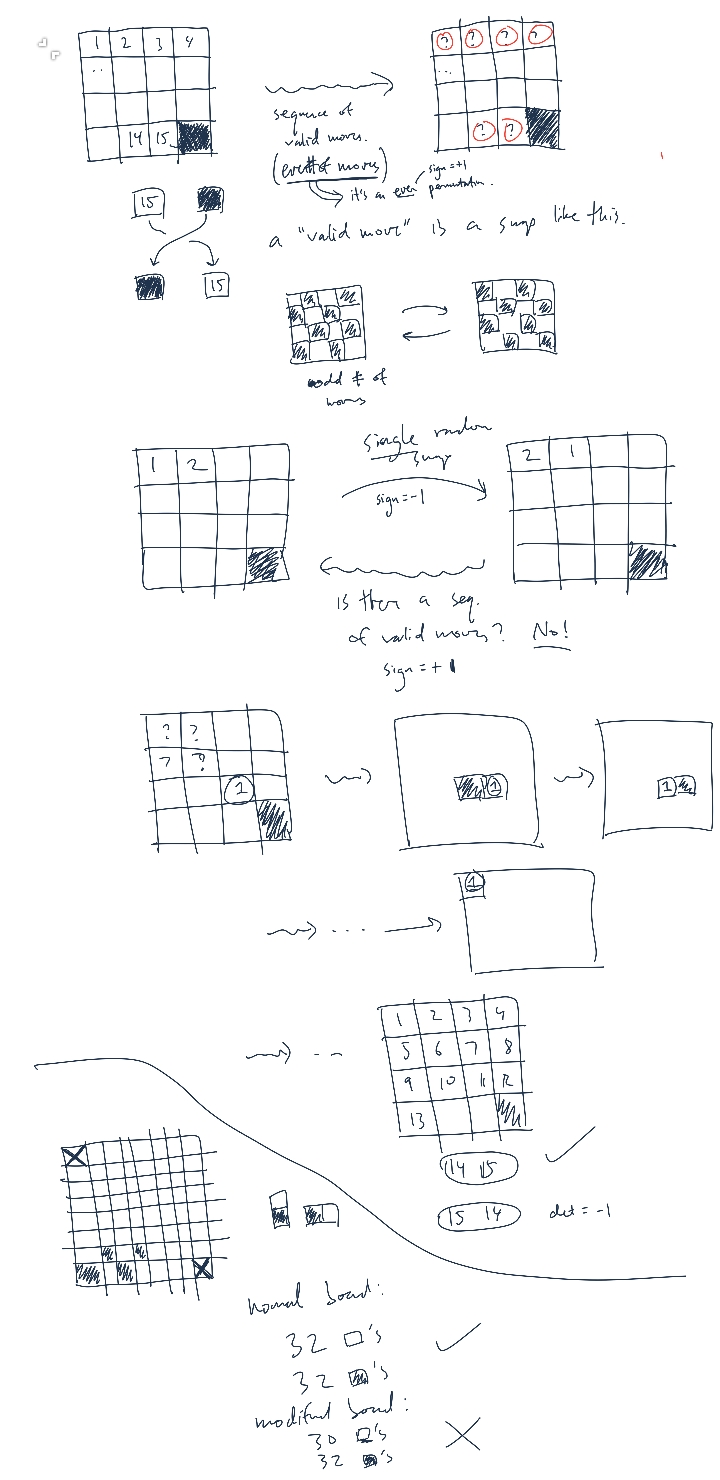 1 2 3 4
..
14 15
? ? ? ?
...
? ?
sequence of
valid moves.
(even # of moves)
sign=+1
it's an even permutation.
15
15
a "valid move" is a swap like this.
odd # of
moves
1 2
single random
swap
sign=-1
2 1
is there a seq.
of valid moves? No!
sign=+1
? ?
? ?
1
1
1
...
1
..
1 2 3 4
5 6 7 8
9 10 11 12
13
14 15
15 14 det = -1
normal board:
32 □'s
32 ■'s
modified board:
30 □'s
32 ■'s